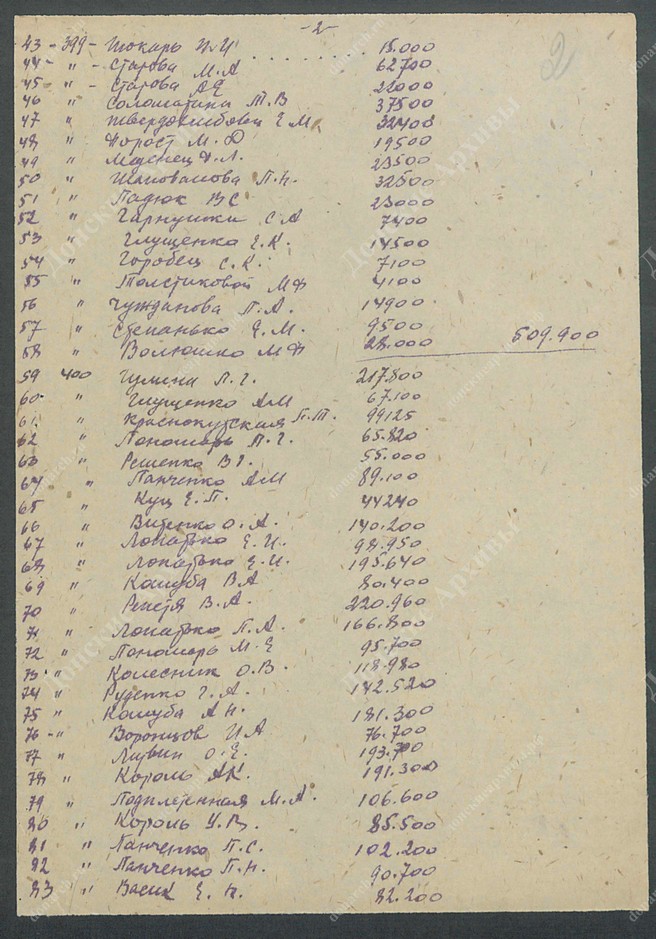 -2-
2
43 - 399 - Шокарь И.И . . . . . . . . 15.000
44 - " - Старова М.А 62700
45 " - Старова А.Е 22000
46 " Соломатина М.В 37500
47 " Твердохлебова Е.М. 32400
48 " Норост М.Ф 19500
49 " 23500
50 " Шаповалова П.Н. 32500
51 " Падюк В С 23000
52 " С.А 7400
53 " Глущенко Е.К. 14500
54 " Горобец С.К. 7100
55 " Толстиковой М.Ф 4100
56 " Чужданова П.А. 14900
57 " Степанько Е.М. 9500
58 " Волошко М.Ф 28.000 509.900
59 400 П.Г. 217.800
60. " Глущенко А.М 67.100
61. " Краснокутская П.Т. 99125
62 " Пономарь П.Г. 65.820
63 " Решенко В.Г. 55.000
64 " Панченко А.М 89.100
65 " Куц Е.П. 44240
66 " Витенко О.А. 140.200
67 " Лопатько Е.И. 98.950
68 " Лопатько Е.И. 195.640
69 " Кошуба В.А 80.400
70 " В.А. 220.960
71 " Лопатько П.А. 166.800
72 " Пономарь М.Е 95.700
73 " Колесник О.В. 118.980
74 " Руденко Г.А. 142.520
75 " Кошуба А.Н. 181.300
76 - " Воронцов И.А 76.700
77 " Литвин О.Е. 193.700
78 " Король А.К. 191.300
79 " М.А. 106.600
80 " Король У.В. 85.500
81 " Панченко П.С. 102.200
82 " Панченко П.Н. 90.700
83 " Васик Е.Н. 82.200